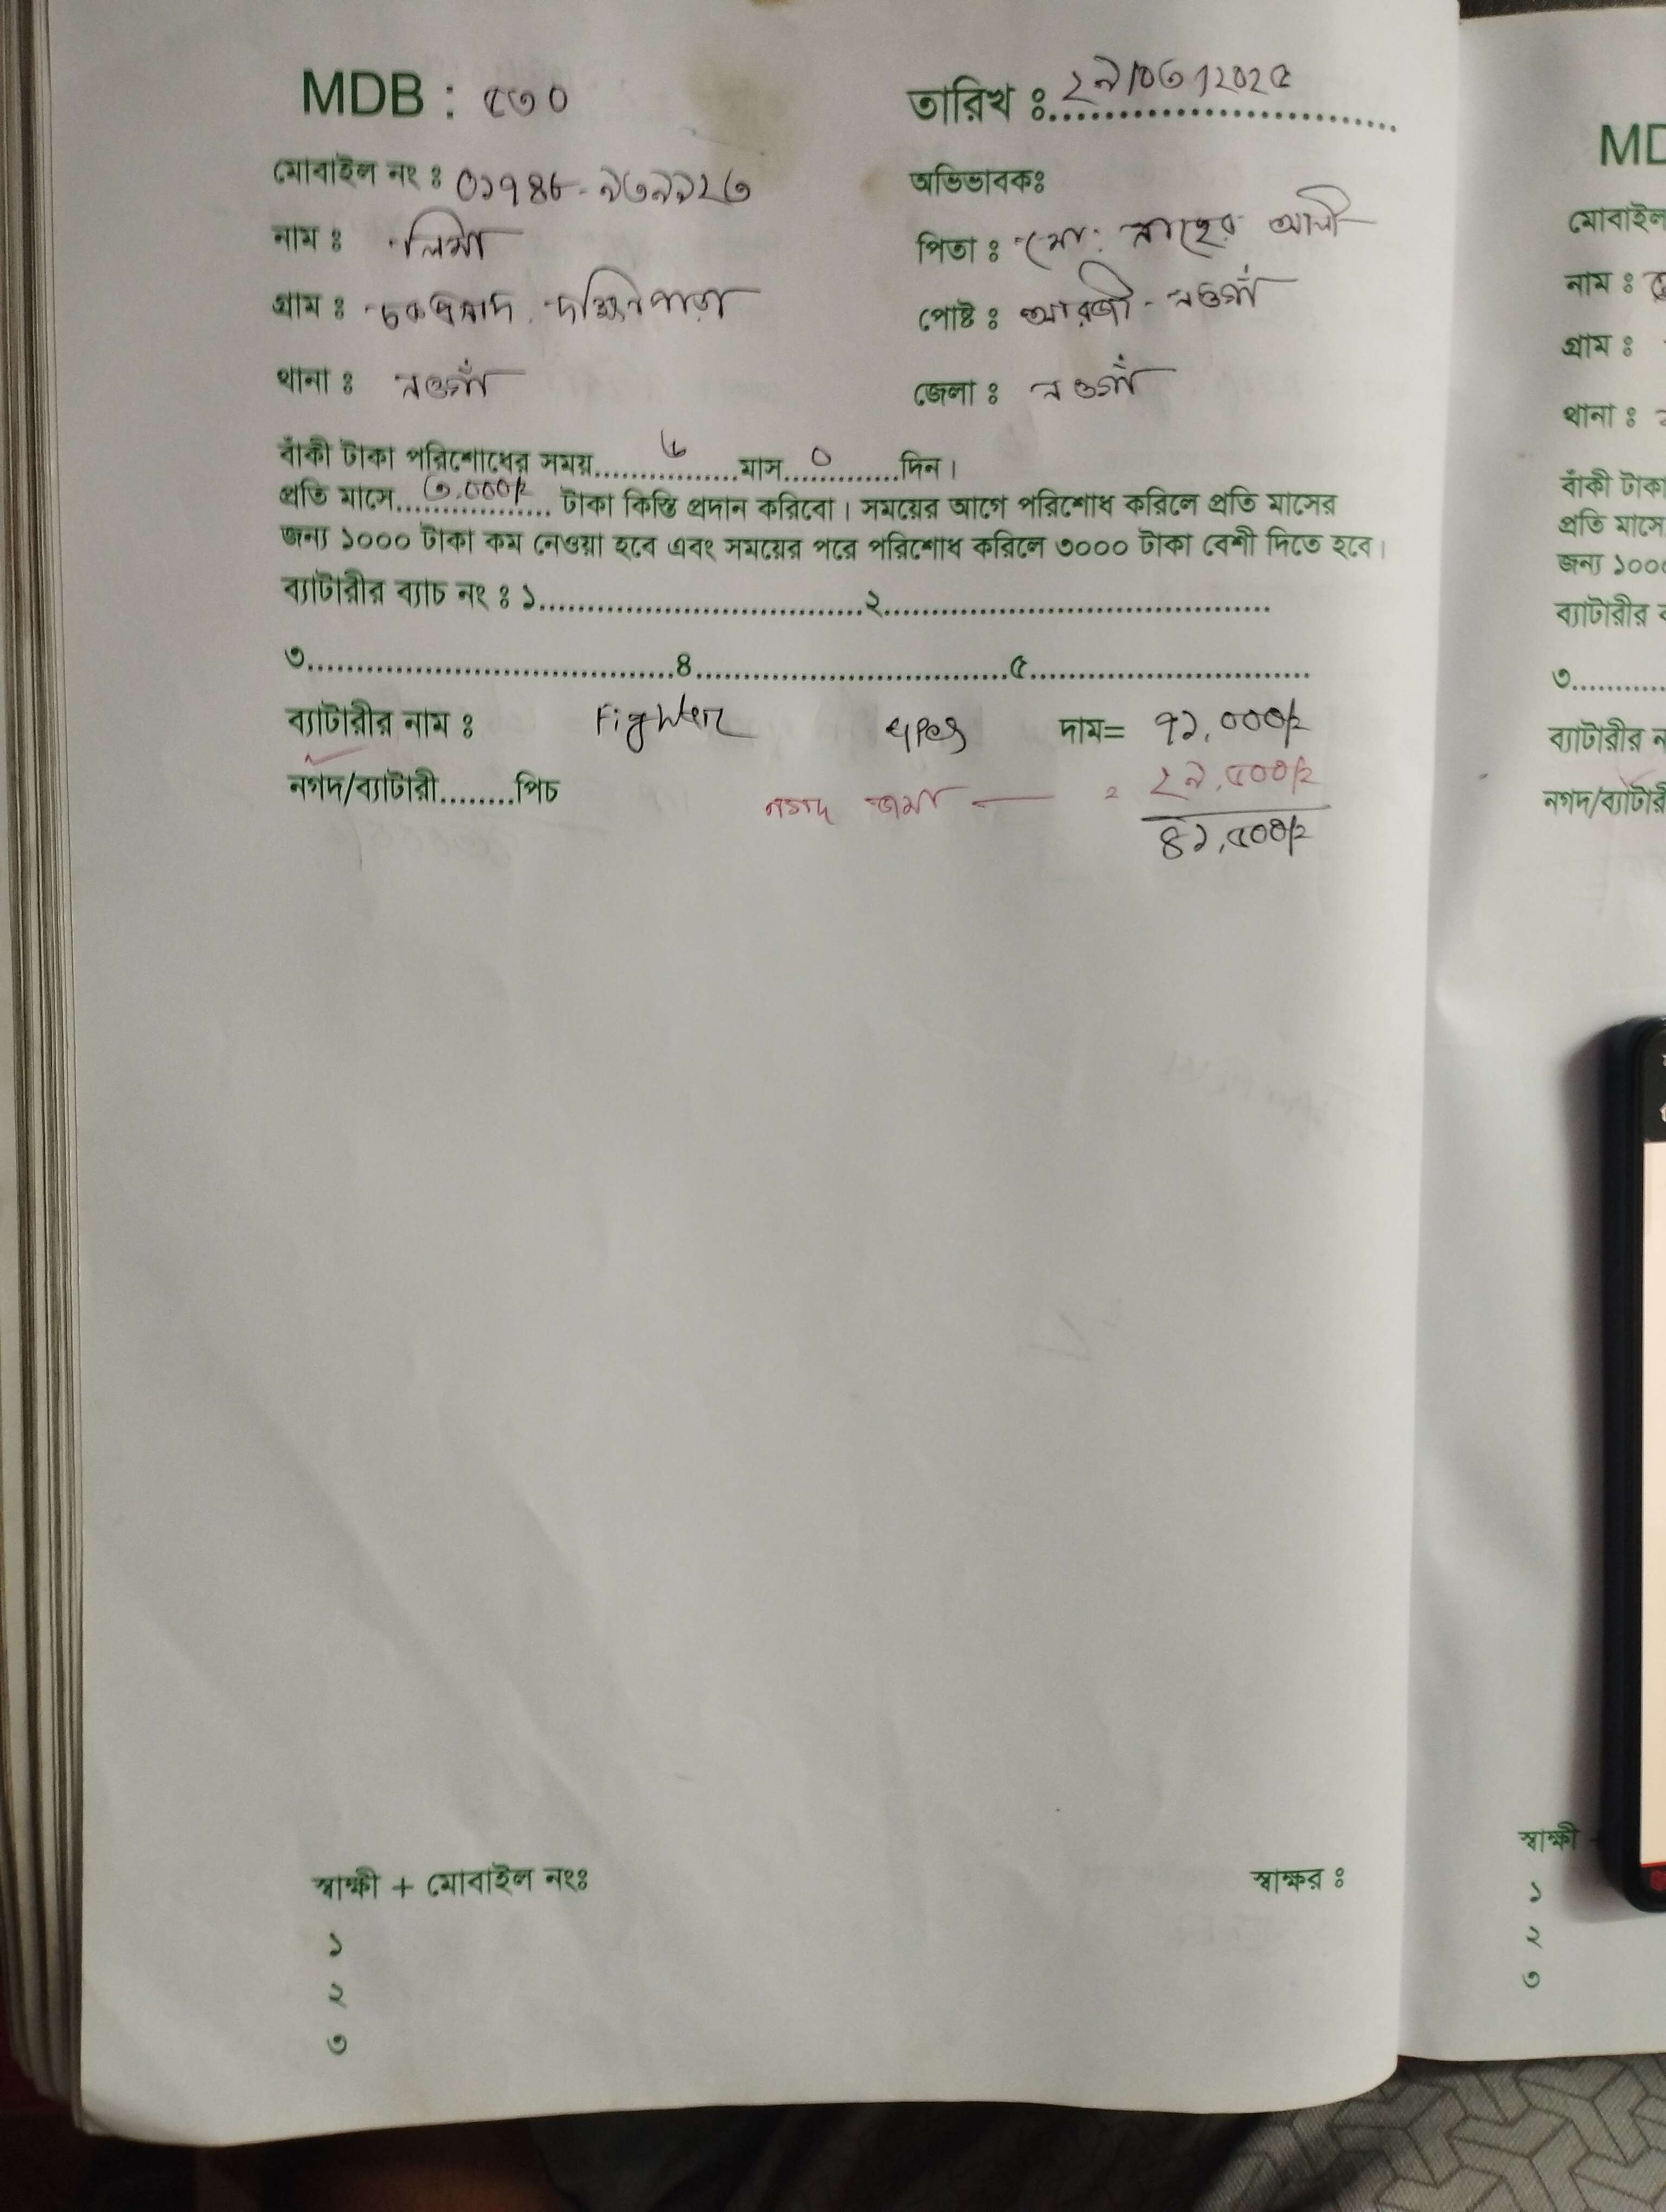 MDB : ৫৩০
তারিখ ঃ ২৯/০৩/২০২৫
মোবাইল নং ঃ ০১৭৪৮-৯৩৯৯২৩
অভিভাবকঃ
নাম ঃ লিমা
পিতা ঃ মো: নাহের আলী
গ্রাম ঃ দক্ষিণপাড়া
পোষ্ট ঃ আরজী - নওগাঁ
থানা ঃ নওগাঁ
জেলা ঃ নওগাঁ
বাঁকী টাকা পরিশোধের সময়..............৬......মাস....০........দিন।
প্রতি মাসে....৩,০০০/২.... টাকা কিস্তি প্রদান করিবো। সময়ের আগে পরিশোধ করিলে প্রতি মাসের
জন্য ১০০০ টাকা কম নেওয়া হবে এবং সময়ের পরে পরিশোধ করিলে ৩০০০ টাকা বেশী দিতে হবে।
ব্যাটারীর ব্যাচ নং ঃ ১................................২......................................
৩.....................................৪...............................৫............................
ব্যাটারীর নাম ঃ Fighter 4Pes দাম= ৭১,০০০/২
নগদ/ব্যাটারী........পিচ নগদ জমা — = ২৯,৫০০/২
৪১,৫০০/২
স্বাক্ষী + মোবাইল নংঃ
স্বাক্ষর ঃ
১
২
৩
মোবাইল
নাম ঃ
গ্রাম ঃ
থানা ঃ
বাঁকী টাকা
প্রতি মাসে
জন্য ১০০০
ব্যাটারীর
৩..........
ব্যাটারীর
নগদ/ব্যাটারী
স্বাক্ষী
১
২
৩